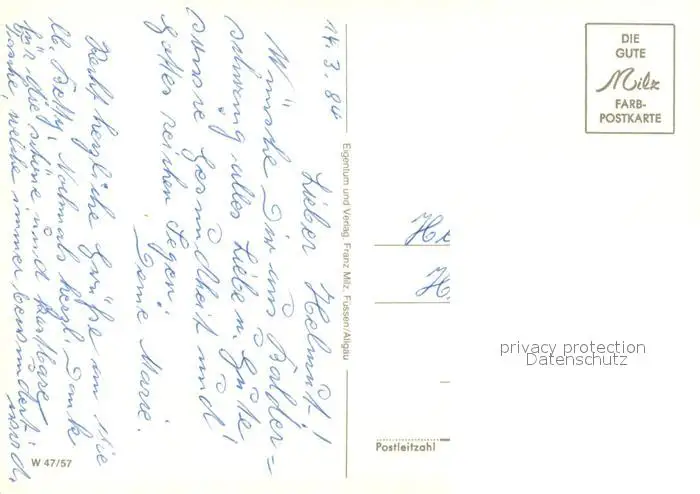 14.3.84
Lieber Helmut!
Wünsche Dir aus Balder=
schwang alles Liebe u. Gute
Gesundheit und
Gottes reichen Segen!
Deine Marie.
Recht herzliche Grüße an die
lb. Betty. Nochmals herzl. Dank
für die schöne und kostbare
Tasche, welche immer bewundert
wird.
W 47/57
Eigentum und Verlag, Franz Milz, Füssen/Allgäu
DIE
GUTE
Milz
FARB-
POSTKARTE
He
H
privacy protection
Datenschutz
Postleitzahl